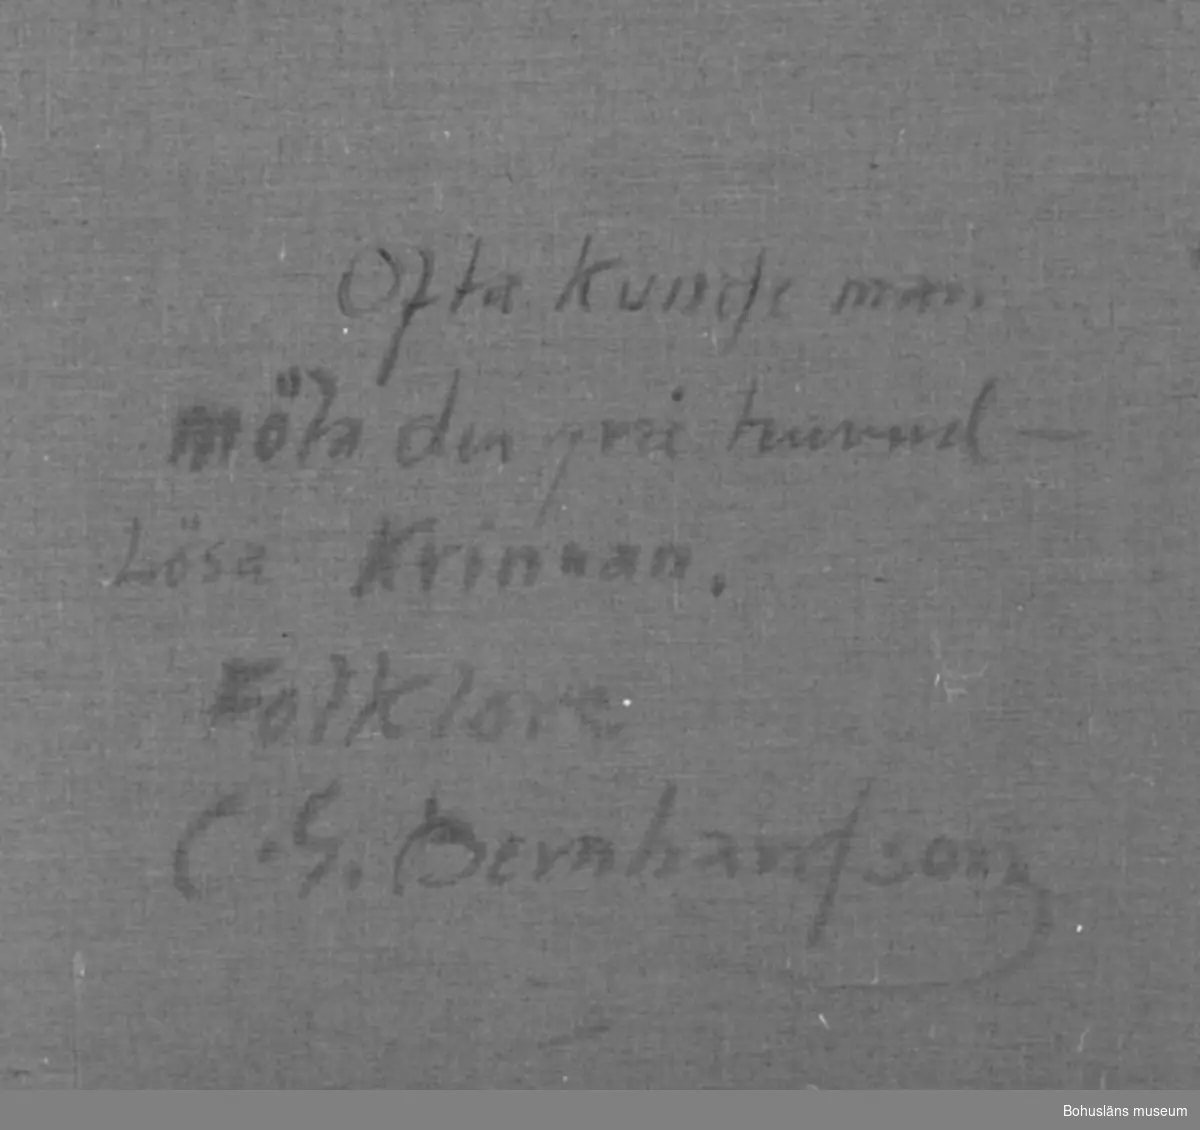 Ofta kunde man
möta den grå huvud—
Lösa Krinnan.
Folklore
C.G. Bernhardson
Bohusläns museum